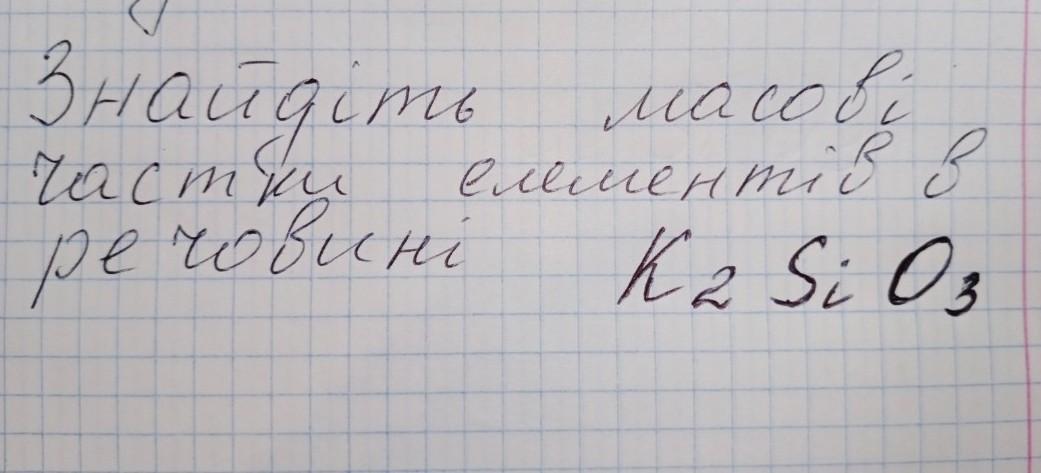 Знайдіть масові
частки елементів в
речовині K2SiO3